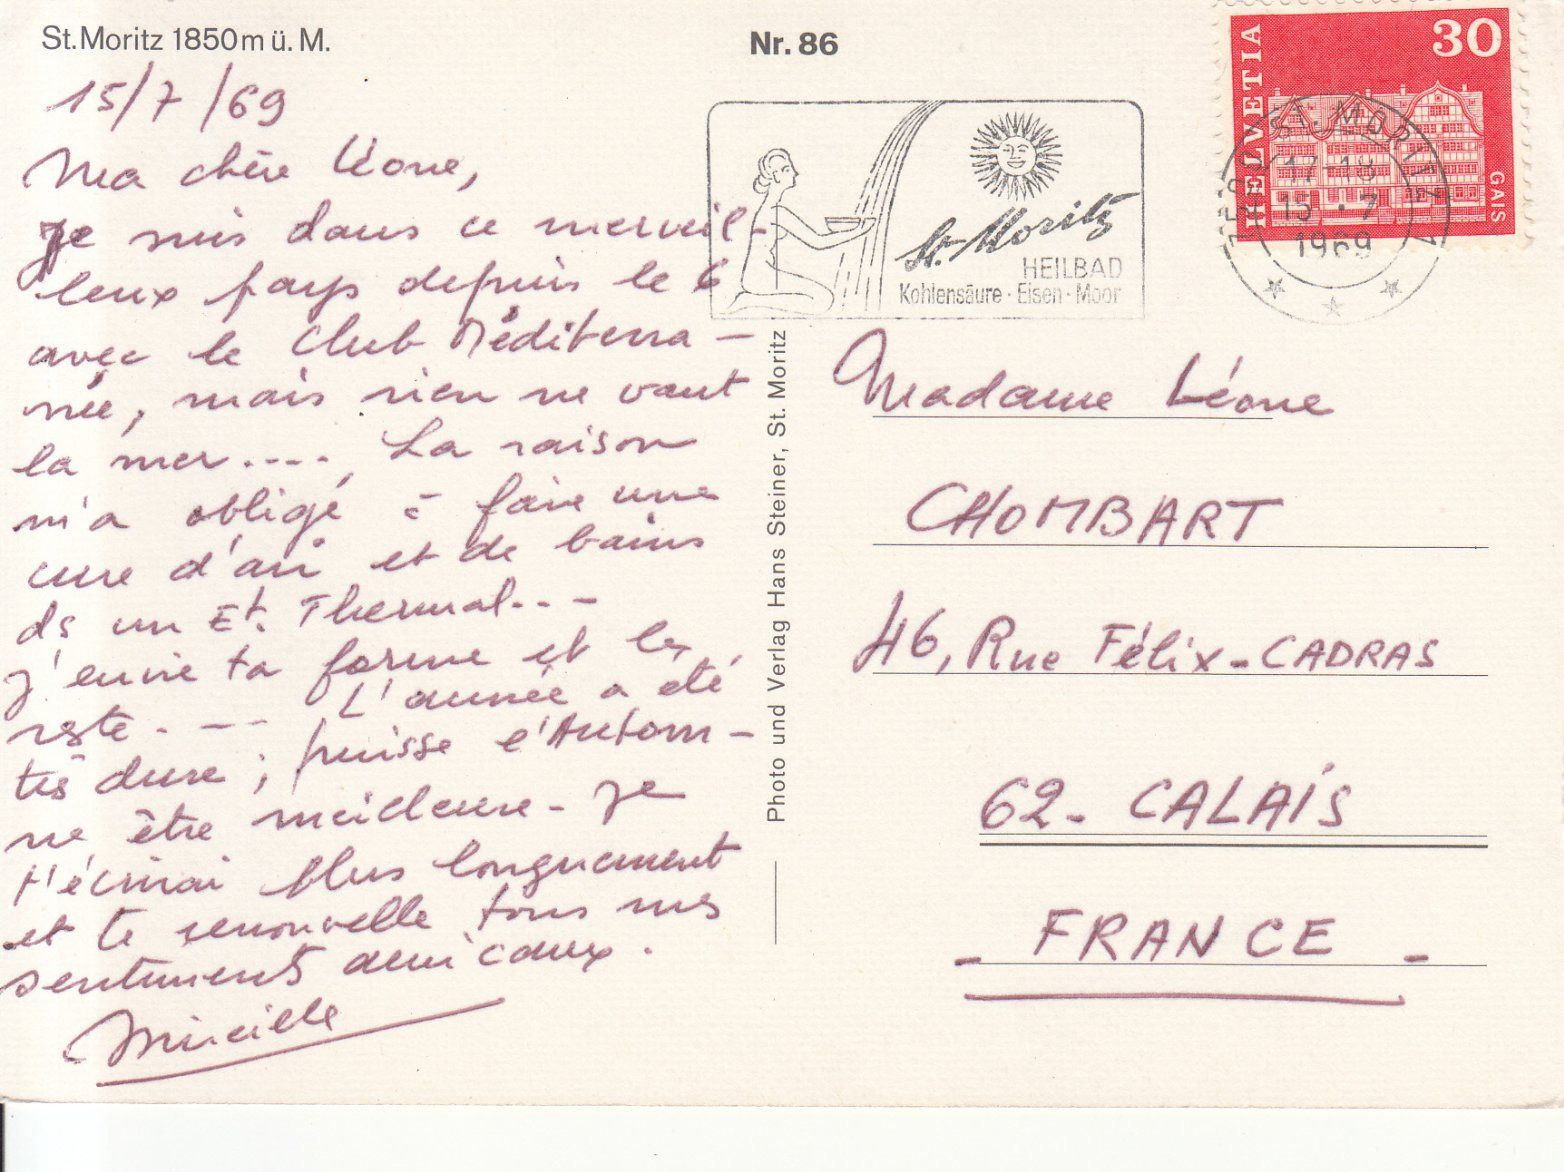 St. Moritz 1850 m ü. M.
Nr. 86
15/7/69
Ma chère Léone,
Je suis dans ce merveil-
leux pays depuis le 6
avec le Club Méditerra-
née, mais rien ne vaut
la mer.... La raison
m'a obligé à faire une
cure d'air et de bains
ds un Et. Thermal...
J'envie ta forme et le
reste. -- L'année a été
très dure ; puisse l'Autom-
ne être meilleure - Je
t'écrirai plus longuement
et te renouvelle tous mes
sentiments amicaux.
Mireille
Photo und Verlag Hans Steiner, St. Moritz
St. Moritz
HEILBAD
Kohlensäure · Eisen · Moor
HELVETIA
30
GAIS
7500 ST. MORITZ 1
17-18
15.-7
1969
Madame Léone
CHOMBART
46, Rue Félix-CADRAS
62- CALAIS
- FRANCE -